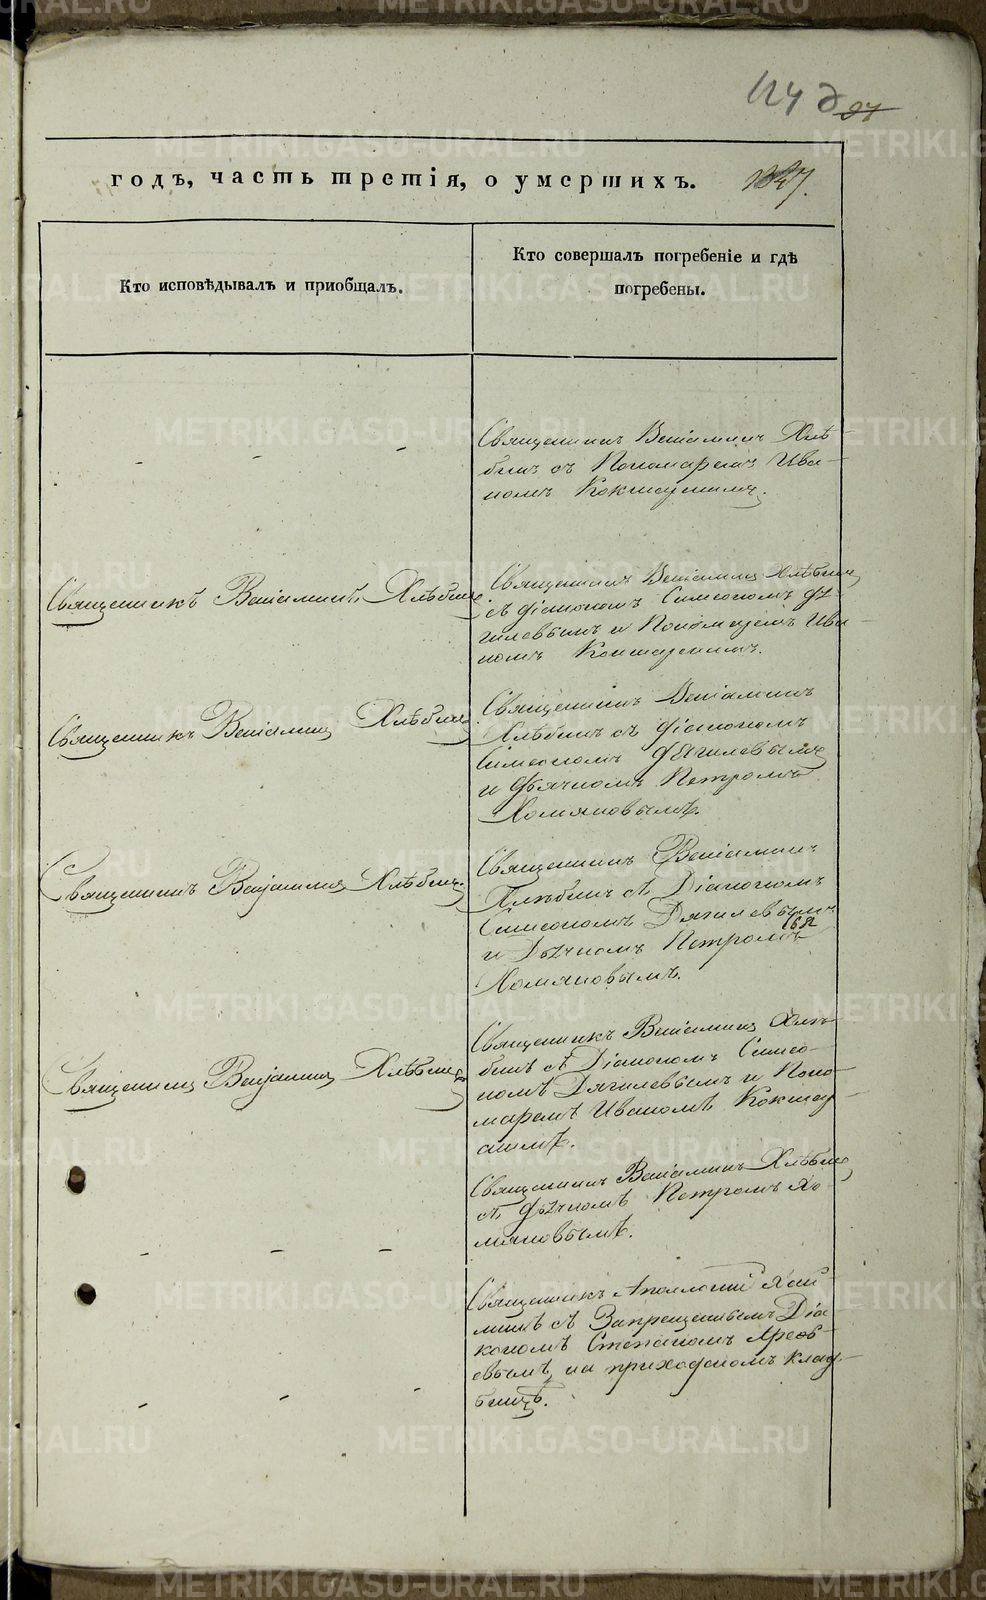 124 д 97
годъ, часть третія, о умершихъ. 1847.
Кто исповѣдывалъ и пріобщалъ.
Кто совершалъ погребеніе и гдѣ
погребены.
- - -
Священникъ Веніаминъ Хлѣ
бинъ съ Пономаремъ Ива-
номъ Кокшарскимъ.
Священникъ Веніаминъ Хлѣбинъ
Священникъ Веніаминъ Хлѣбинъ
съ діакономъ Симеономъ Дя-
гилевымъ и Пономаремъ Ива-
номъ Кокшарскимъ.
Священникъ Веніаминъ Хлѣбинъ
Священникъ Веніаминъ
Хлѣбинъ съ діакономъ
Симеономъ Дягилевымъ
и дьячкомъ Петромъ
Хомяковымъ.
Священникъ Веніаминъ Хлѣбинъ.
Священникъ Веніаминъ
Хлѣбинъ съ Діакономъ
Симеономъ Дягилевымъ
и Дьячкомъ Петромъ
Хомяковымъ.
Священникъ Веніаминъ Хлѣбинъ
Священникъ Веніаминъ Хлѣ-
бинъ съ Діакономъ Симео-
номъ Дягилевымъ и Поно-
маремъ Иваномъ Кокшар
скимъ.
- - -
Священникъ Веніаминъ Хлѣбинъ
съ дьячкомъ Петромъ Хо-
мяковымъ.
- - -
Священникъ Аполлоній
съ Запрещеннымъ Діа
кономъ Степаномъ
на приходскомъ клад-
бищѣ.
METRIKI.GASO-URAL.RU